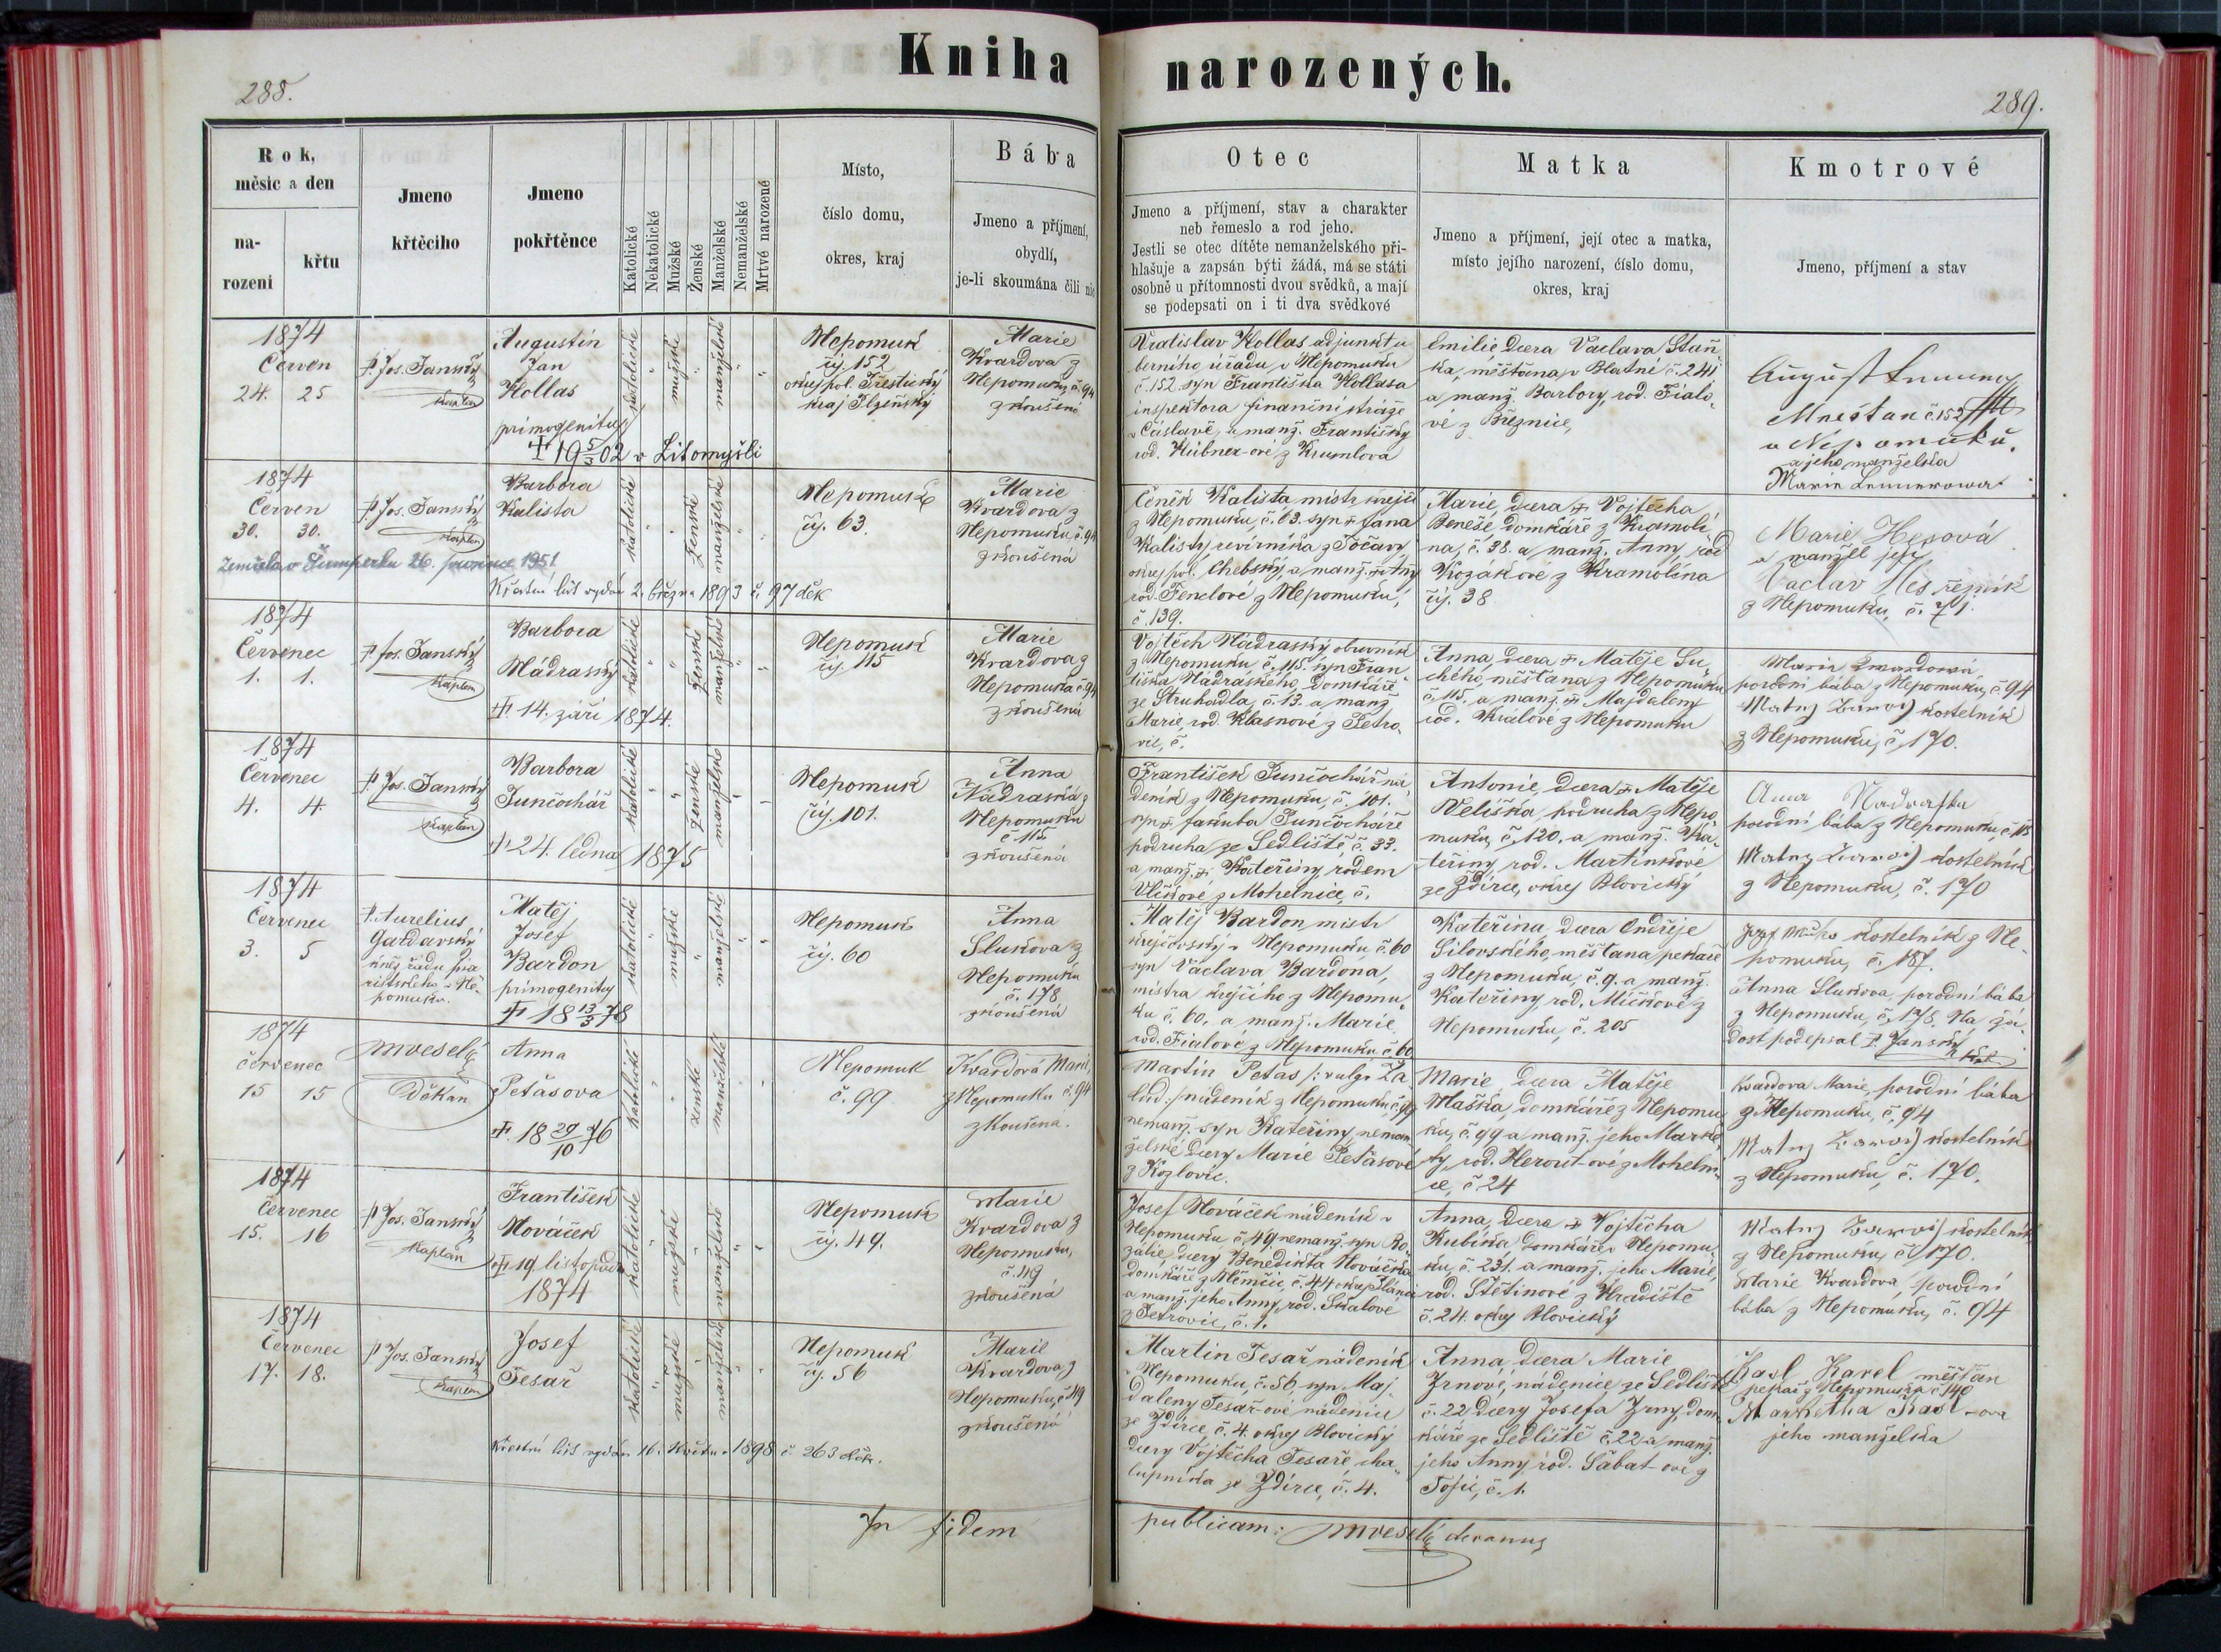 288.
Kniha narozených.
289.
Rok, měsíc a den
narození
křtu
Jmeno křtěcího
Jmeno pokřtěnce
Katolické
Nekatolické
Mužské
Ženské
Manželské
Nemanželské
Mrtvě narozené
Místo,
číslo domu,
okres, kraj
Bába
Jmeno a příjmení,
obydlí,
je-li skoumána čili nic
Otec
Jmeno a příjmení, stav a charakter
neb řemeslo a rod jeho.
Jestli se otec dítěte nemanželského při-
hlašuje a zapsán býti žádá, má se státi
osobně u přítomnosti dvou svědků, a mají
se podepsati on i ti dva svědkové
Matka
Jmeno a příjmení, její otec a matka,
místo jejího narození, číslo domu,
okres, kraj
Kmotrové
Jmeno, příjmení a stav
1874
Červen
24. 25
P. Jos. Janský
kaplan
Augustin
Jan
Kollas
primogenitus
† 19 5/3 02 v Litomyšli
katolické
mužské
manželské
Nepomuk
čís. 152
okres pol. Přeštický
kraj Plzeňský
Marie
Kvardova z
Nepomuku, č. 94
zkoušená
Vratislav Kollas adjunkt u
berního úřadu v Nepomuku
č. 152. syn Františka Kollasa
inspektora finanční stráže
v Čáslavě, a manž. Františky
rod. Hübner-ové z Krumlova
Emilie dcera Václava Staň
ka, měšťana v Blatni č. 241
a manž. Barbory, rod. Fialo-
vé z Březnice,
August
Mnestan č. 152
u Nepomuku.
a jeho manželka
Marie
1874
Červen
30. 30.
P. Jos. Janský
kaplan
Barbora
Kalista
katolické
ženské
manželské
Zemřela v Šumperku 26. 1951
Křestní list vydán 2. března 1893 č. 97 děk
Nepomuk
čís. 63.
Marie
Kvardova z
Nepomuku, č. 94
zkoušená
Čeněk Kalista, mistr krejčí
z Nepomuku, č. 63. syn † Jana
Kalisty, revírníka z Točavy,
okres pol. Chebský, a manž. † Anny
rod. Fenclové z Nepomuku,
č. 139.
Marie, dcera † Vojtěcha
Beneše, domkáře z Kramoli-
na, č. 38. a manž. Anny, rod
Kozákové z Kramolína
čís. 38
Marie Hesová
a manžel její
Vaclav Hes řezník
z Nepomuku, č. 71.
1874
Červenec
1. 1.
P. Jos. Janský
kaplan
Barbora
Nádraský
†. 14. září 1874.
katolické
ženské
manželské
Nepomuk
čís. 115
Marie
Kvardova z
Nepomuka č. 94
zkoušená
Vojtěch Nádraský, obuvník
z Nepomuku č. 115. syn Fran-
tiška Nádraského, domkáře
ze Struhadla, č. 13. a manž
Marie, rod. Klasnové z Petro-
vic, č.
Anna, dcera † Matěje Su-
chého, měšťana z Nepomuku
č. 115. a manž. † Majdaleny
rod. Králové z Nepomuku
Marie Kwardowá,
porodní bába z Nepomuku, č. 94
kostelník
z Nepomuku, č. 170.
1874
Červenec
4. 4.
P. Jos. Janský
kaplan
Barbora
Punčochář
† 24. ledna 1875
katolické
ženské
manželské
Nepomuk
čís. 101.
Anna
Nádraská z
Nepomuku
č. 115
zkoušená
František Punčochář ná-
deník z Nepomuku, č. 101.
syn † Jakuba Punčocháře
podruha ze Sedliště č. 33.
a manž. † Kateřiny, rodem
Vlčkové z Mohelnice, č.
Antonie, dcera † Matěje
Velíška, podruha z Nepo-
muku, č. 120. a manž. Ka-
teřiny, rod. Martinkové
ze Ždírce, okres Blovický
Anna Nadraska
porodní bába z Nepomuku č. 115
kostelník
z Nepomuku, č. 170
1874
Červenec
3. 5
P. Aurelius
Gardavský
kněz řádu pia
ristského v Ne-
pomuku.
Matěj
Josef
Bardon
primogenitus
† 18 13/3 78
katolické
mužské
manželské
Nepomuk
čís. 60
Anna
Slukova z
Nepomuku
č. 178
zkoušená
Matěj Bardon mistr
krejčovský v Nepomuku, č. 60
syn Václava Bardona,
mistra krejčího z Nepomu-
ku č. 60. a manž. Marie
rod. Fialové z Nepomuku č. 60
Kateřina, dcera Ondřeje
Silovského, měšťana pekaře
z Nepomuku, č. 9. a manž.
Kateřiny, rod. Míčkové z
Nepomuku, č. 205
kostelník z Ne-
pomuku, č. 187.
Anna Slukova, porodní bába
z Nepomuku, č. 178. Na žá-
dost podepsal P. Janský
kpl
1874
červenec
15 15
Děkan
Anna
Petásova
†. 18 29/10 76
katolické
ženské
manželské
Nepomuk
č. 99
Kvardová Marie,
z Nepomuku č. 94
zkoušená.
Martin Petas /: vulgo Ža-
loud :/ nádeník z Nepomuku č. 99
nemanž. syn Kateřiny, neman-
želské dcery Marie Petásové
z Kozlovic.
Marie, dcera Matěje
Maška, domkáře z Nepomu-
ku, č. 99 a manž. jeho Marke-
ty, rod. Herout-ové z Mohelni-
ce, č. 24
Kvardova Marie, porodní bába
z Nepomuku, č. 94
kostelník
z Nepomuku, č. 170.
1874
Červenec
15. 16
P. Jos. Janský
Kaplan
František
Nováček
† 19 listopadu
1874
katolické
mužské
manželské
Nepomuk
čís. 49.
Marie
Kvardova z
Nepomuku,
č. 49
zkoušená
Josef Nováček nádeník v
Nepomuku č. 49, nemanž. syn Ro-
zálie, dcery Benedikta Nováčka
domkáře z Němčic, č. 44 okres Plánic
a manž. jeho Anny, rod. Skalové
z Petrovic, č. 1.
Anna, dcera † Vojtěcha
Kubíka, domkáře v Nepomu-
ku, č. 231. a manž. jeho Marie,
rod. Štětinové z Hradiště
č. 24. okres Blovický
kostelník
z Nepomuku, č. 170.
Marie Kvardova, porodní
bába z Nepomuku, č. 94
1874
Červenec
17. 18.
P. Jos. Janský
kaplan
Josef
Tesař
katolické
mužské
manželské
Křestní list vydán 16. května 1898 č. 263 děk.
Nepomuk
čís. 56
Marie
Kvardova z
Nepomuku, č. 49
zkoušená
Martin Tesař nádeník
v Nepomuku, č. 56, syn Maj-
daleny Tesař-ové nádenice
ze Ždírce, č. 4. okres Blovický
dcery Vojtěcha Tesaře cha-
lupníka ze Ždírce, č. 4.
Anna, dcera Marie
Zrnové, nádenice ze Sedliště
č. 22 dcery Josefa Zrny, dom-
káře ze Sedliště č. 22 a manž.
jeho Anny, rod. Šabat-ové z
č. 1.
Karel měšťan
pekař z Nepomuka č. 140
Marketha
jeho manželka
In fidem publicam: decanus